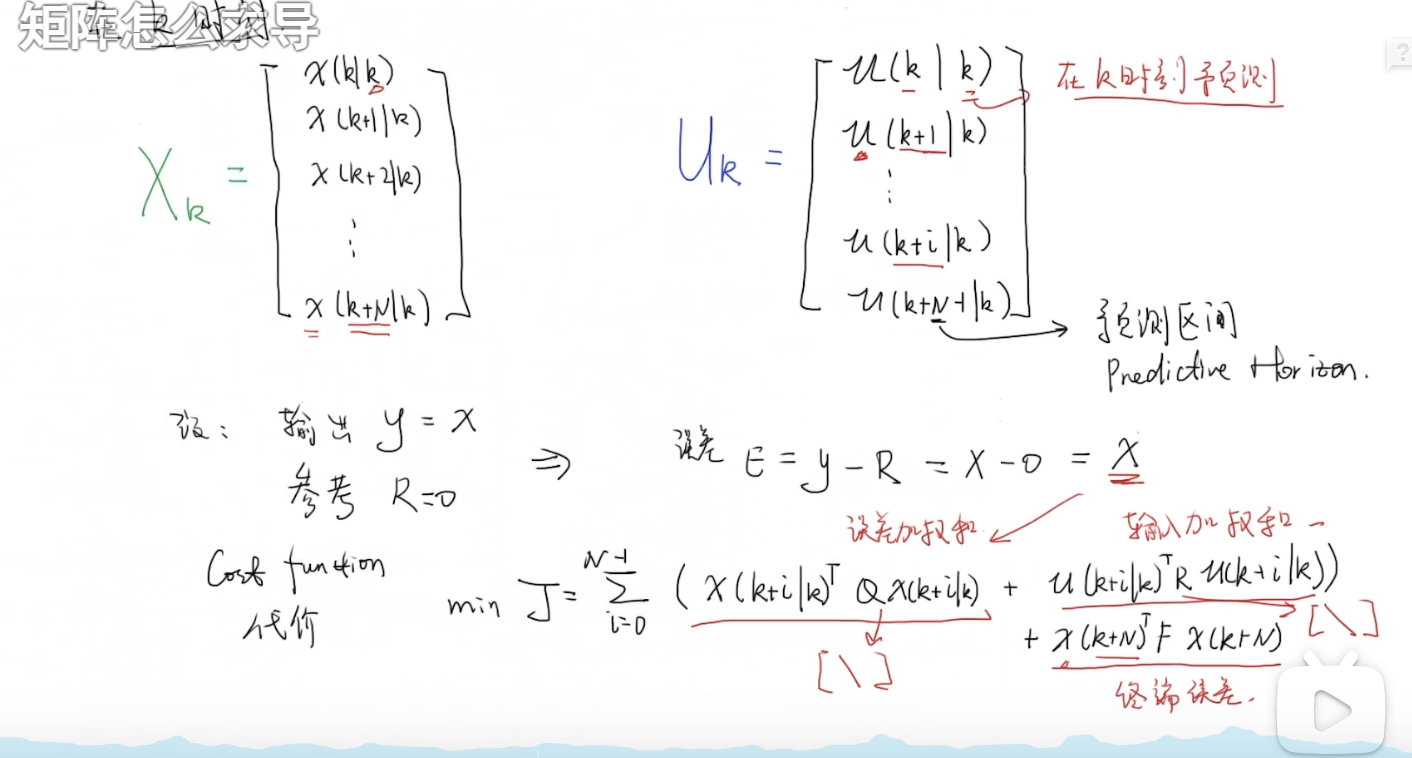 矩阵怎么求导
在 k 时刻
X_k = [ x(k|k)
x(k+1|k)
x(k+2|k)
⋮
x(k+N|k) ]
U_k = [ u(k|k) 在k时刻予页测
u(k+1|k)
⋮
u(k+i|k)
u(k+N-1|k) ]
预测区间
Predictive Horizon.
设: 输出 y = x
参考 R=0
⇒ 误差 E = y - R = x - 0 = x
误差加权和 输入加权和
Cost function
代价
min J = Σ_{i=0}^{N-1} ( x(k+i|k)^T Q x(k+i|k) + u(k+i|k)^T R u(k+i|k))
+ x(k+N)^T F x(k+N)
[\] [\]
终端误差.
?